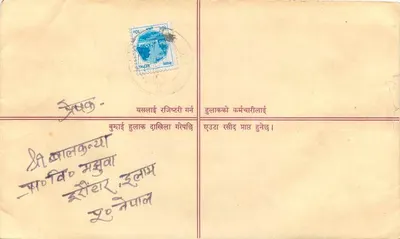 प्रेषक-
यसलाई रजिष्टरी गर्न हुलाकको कर्मचारीलाई
बुझाई हुलाक दाखिला गरेपछि एउटा रसीद प्राप्त हुनेछ।
श्री बालकन्या
प्रा० वि० मझुवा
इरौटार, इलाम
पू० नेपाल